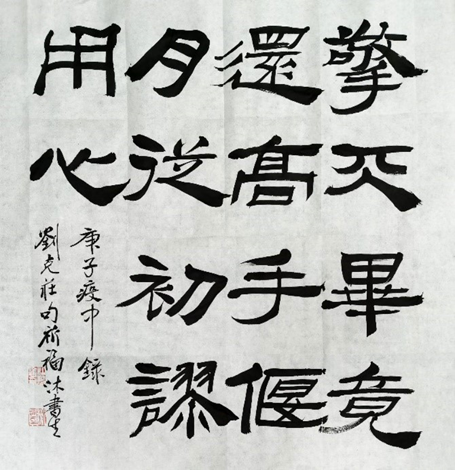 擎天畢竟
還高手偃
月從初謬
用心
庚子疫中錄
劉克莊句祈福